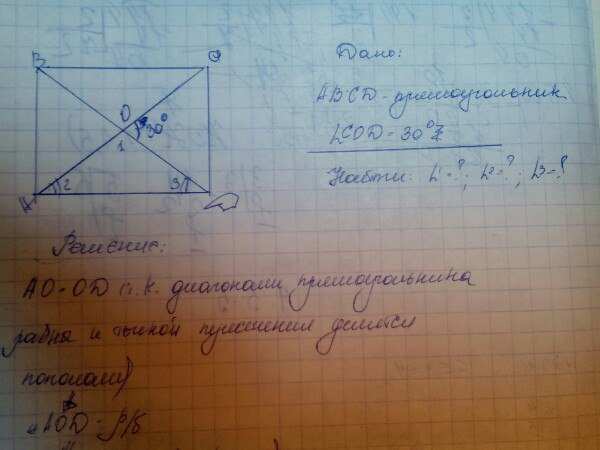 B C
O
30°
1
A 2 3 D
Дано:
ABCD - прямоугольник
∠COD - 30°
Найти: ∠1-?; ∠2-?; ∠3-?
Решение:
AO-OD т.к. диагонали прямоугольника
равны и точкой пересечения делятся
пополам)
AOD - р/б